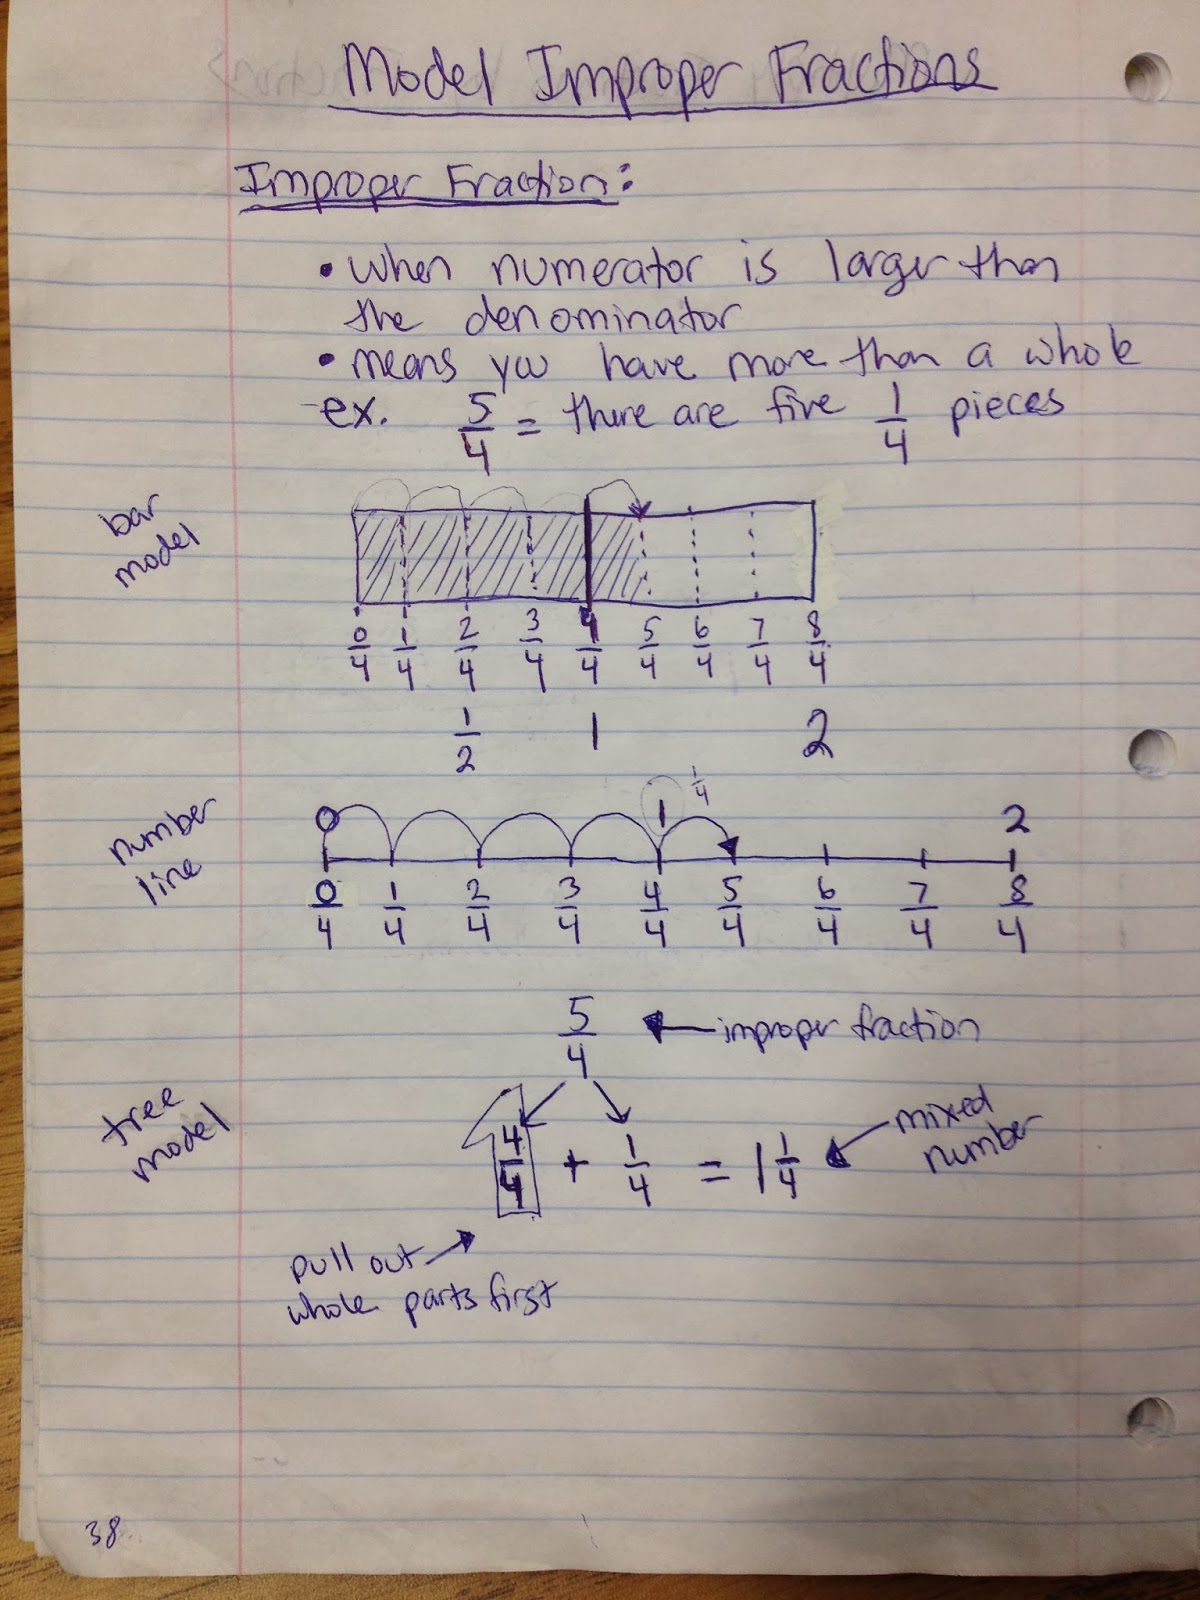 Model Improper Fractions
Improper Fraction:
• when numerator is larger than
the denominator
• means you have more than a whole
ex. 5/4 = there are five 1/4 pieces
bar
model
0/4 1/4 2/4 3/4 4/4 5/4 6/4 7/4 8/4
1/2 1 2
number
line
0 1 1/4 2
0/4 1/4 2/4 3/4 4/4 5/4 6/4 7/4 8/4
5/4 ← improper fraction
tree
model
4/4 + 1/4 = 1 1/4 ← mixed
number
pull out →
whole parts first
38